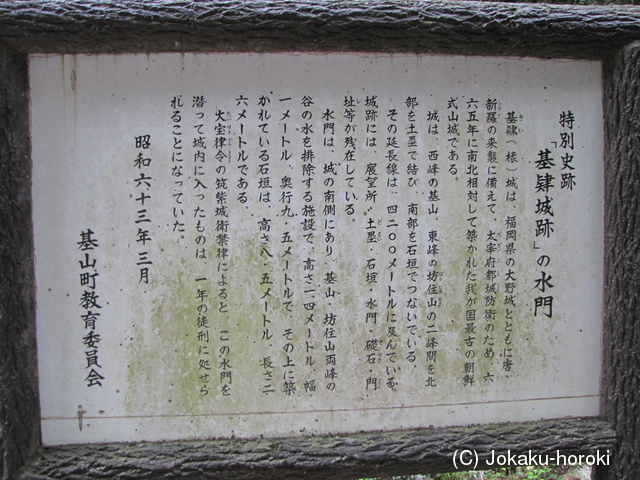 特別史跡
「基肄城跡」の水門
基肄（椽）城は、福岡県の大野城とともに唐・
新羅の来襲に備えて、太宰府都城防衛のため、六
六五年に南北相対して築かれた我が国最古の朝鮮
式山城である。
城は、西峰の基山、東峰の坊住山の二峰間を北
部を土塁で結び、南部を石垣でつないでいる。
その延長線は、四二〇〇メートルに及んでいる。
城跡には、展望所・土塁・石垣・水門・礎石・門
址等が残在している。
水門は、城の南側にあり、基山・坊住山両峰の
谷の水を排除する施設で、高さ一、四メートル、幅
一メートル、奥行九・五メートルで、その上に築
かれている石垣は、高さ八・五メートル、長さ二
六メートルである。
大宝律令の筑紫城衛禁律によると、この水門を
潜って城内に入ったものは、一年の徒刑に処せら
れることになっていた。
昭和六十三年三月
基山町教育委員会
(C) Jokaku-horoki